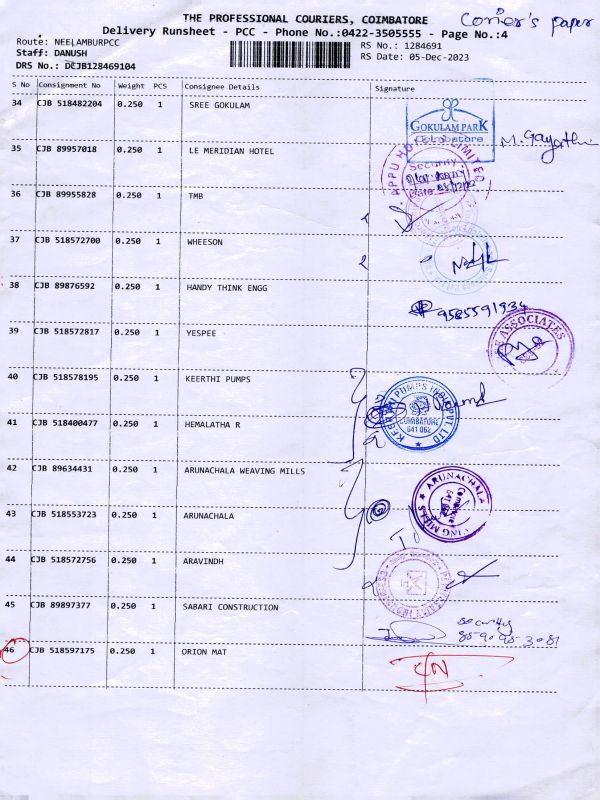 THE PROFESSIONAL COURIERS, COIMBATORE
Corier's paper
Delivery Runsheet - PCC - Phone No.:0422-3505555 - Page No.:4
Route: NEELAMBURPCC
RS No.: 1284691
Staff: DANUSH
RS Date: 05-Dec-2023
DRS No.: DCJB128469104
S No Consignment No Weight PCS Consignee Details Signature
34 CJB 518482204 0.250 1 SREE GOKULAM
GOKULAM PARK
Coimbatore
M. Gayathri
35 CJB 89957018 0.250 1 LE MERIDIAN HOTEL
APPU HOTELS LIMITED
Security
Date
36 CJB 89955828 0.250 1 TMB
37 CJB 518572700 0.250 1 WHEESON
38 CJB 89876592 0.250 1 HANDY THINK ENGG
9585591934
39 CJB 518572817 0.250 1 YESPEE
ASSOCIATES
40 CJB 518578195 0.250 1 KEERTHI PUMPS
PUMPS INDIA PVT. LTD
COIMBATORE
641 062
41 CJB 518400477 0.250 1 HEMALATHA R
42 CJB 89634431 0.250 1 ARUNACHALA WEAVING MILLS
ARUNACHALA
43 CJB 518553723 0.250 1 ARUNACHALA
44 CJB 518572756 0.250 1 ARAVINDH
45 CJB 89897377 0.250 1 SABARI CONSTRUCTION
security
46 CJB 518597175 0.250 1 ORION MAT